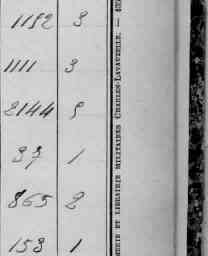 1192 3
1111 3
2144 5
37 1
865 2
153 1
MERIE ET LIBRAIRIE MILITAIRES CHARLES-LAVAUZELLE. —